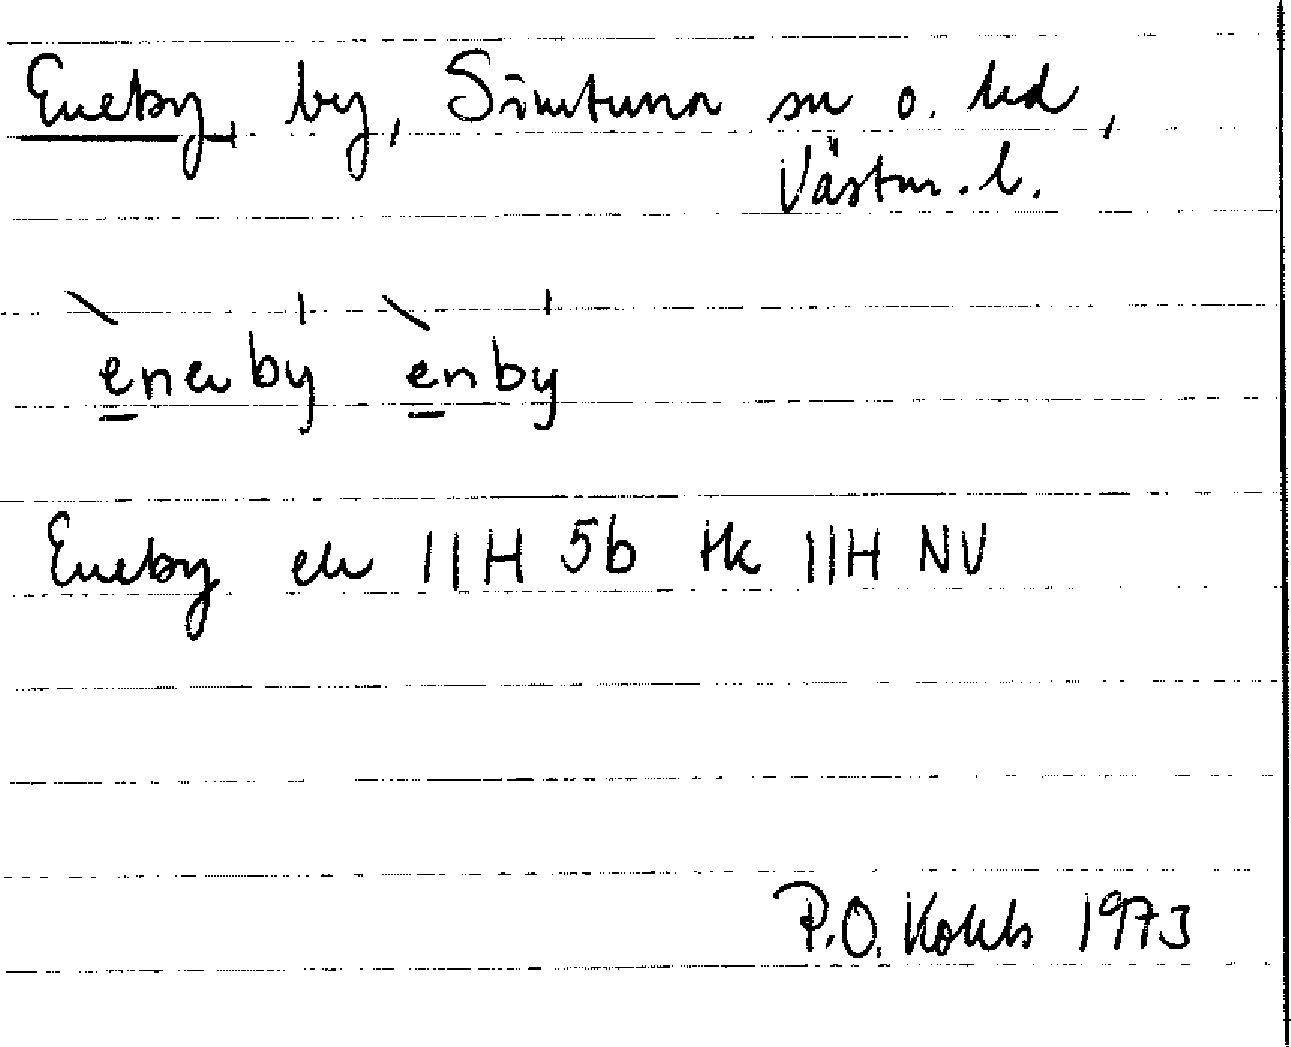 Eneby, by, Simtuna sn o. hd,
Västm. l.
eneby enby
Eneby ek 11H 5b tk 11H NV
P.O. 1973